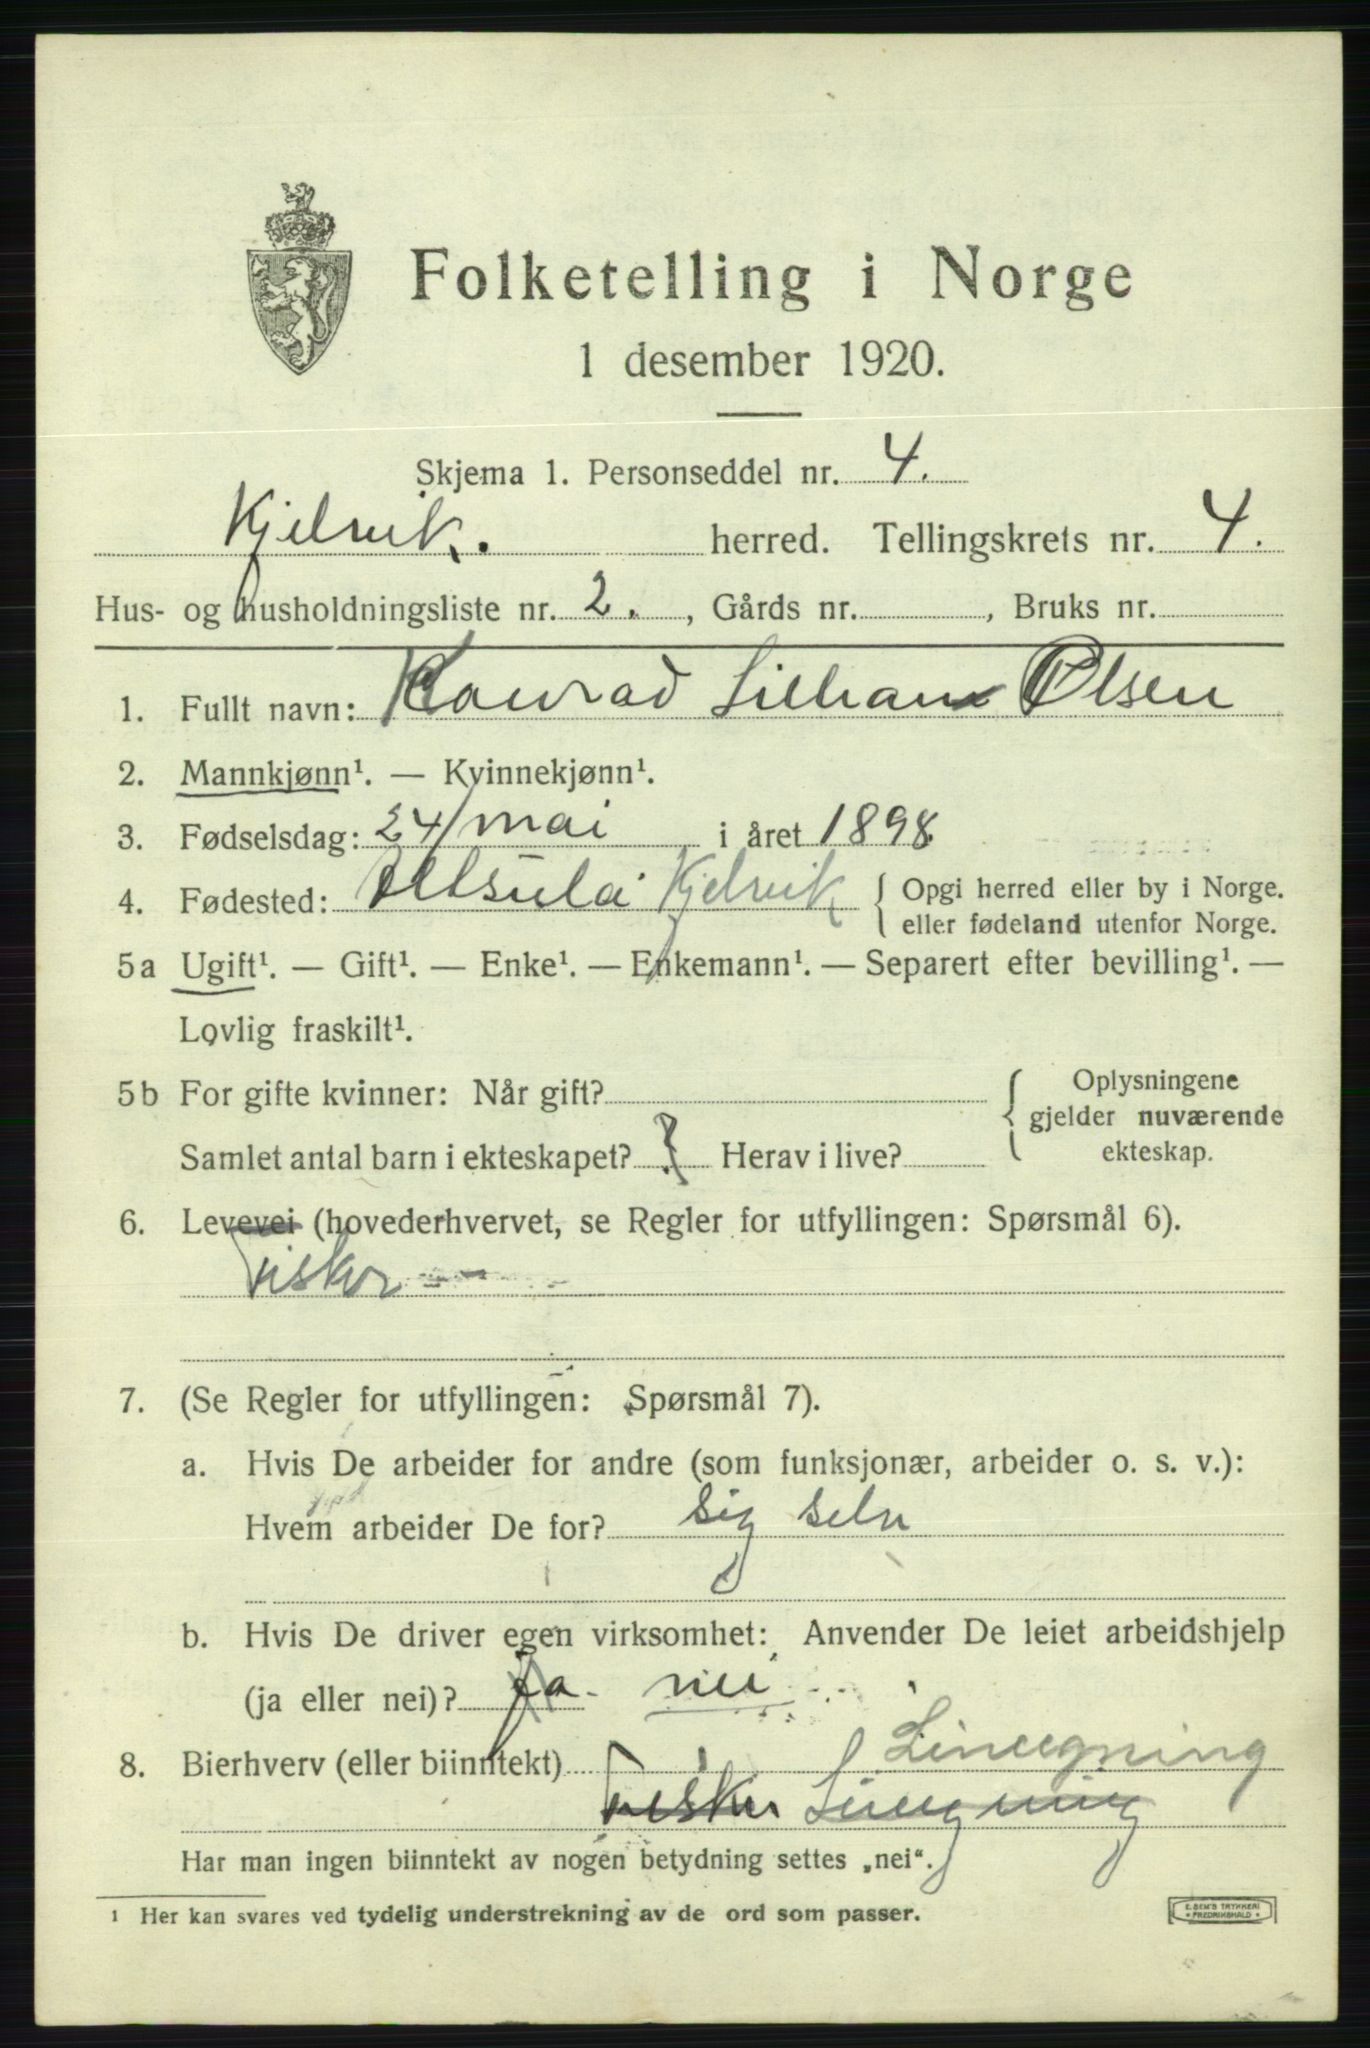 Folketelling i Norge
1 desember 1920.
Skjema 1. Personseddel nr. 4.
Kjelvik. herred. Tellingskrets nr. 4.
Hus- og husholdningsliste nr. 2. , Gårds nr. , Bruks nr.
1. Fullt navn: Konrad Olsen
2. Mannkjønn¹. — Kvinnekjønn¹.
3. Fødselsdag: 24/mai i året 1898
4. Fødested: Kjelvik { Opgi herred eller by i Norge.
eller fødeland utenfor Norge.
5a Ugift¹. — Gift¹. — Enke¹. — Enkemann¹. — Separert efter bevilling¹. —
Lovlig fraskilt¹.
5b For gifte kvinner: Når gift? { Oplysningene
gjelder nuværende
Samlet antal barn i ekteskapet? Herav i live? ekteskap.
6. Levevei (hovederhvervet, se Regler for utfyllingen: Spørsmål 6).
Fisker
7. (Se Regler for utfyllingen: Spørsmål 7).
a. Hvis De arbeider for andre (som funksjonær, arbeider o. s. v.):
Hvem arbeider De for? sig selv
b. Hvis De driver egen virksomhet: Anvender De leiet arbeidshjelp
(ja eller nei)? ja nei
8. Bierhverv (eller biinntekt) Lineegning
Fisker Lineegning
Har man ingen biinntekt av nogen betydning settes „nei“.
¹ Her kan svares ved tydelig understrekning av de ord som passer.
E. SEM'S TRYKKERI
• FREDRIKSHALD •